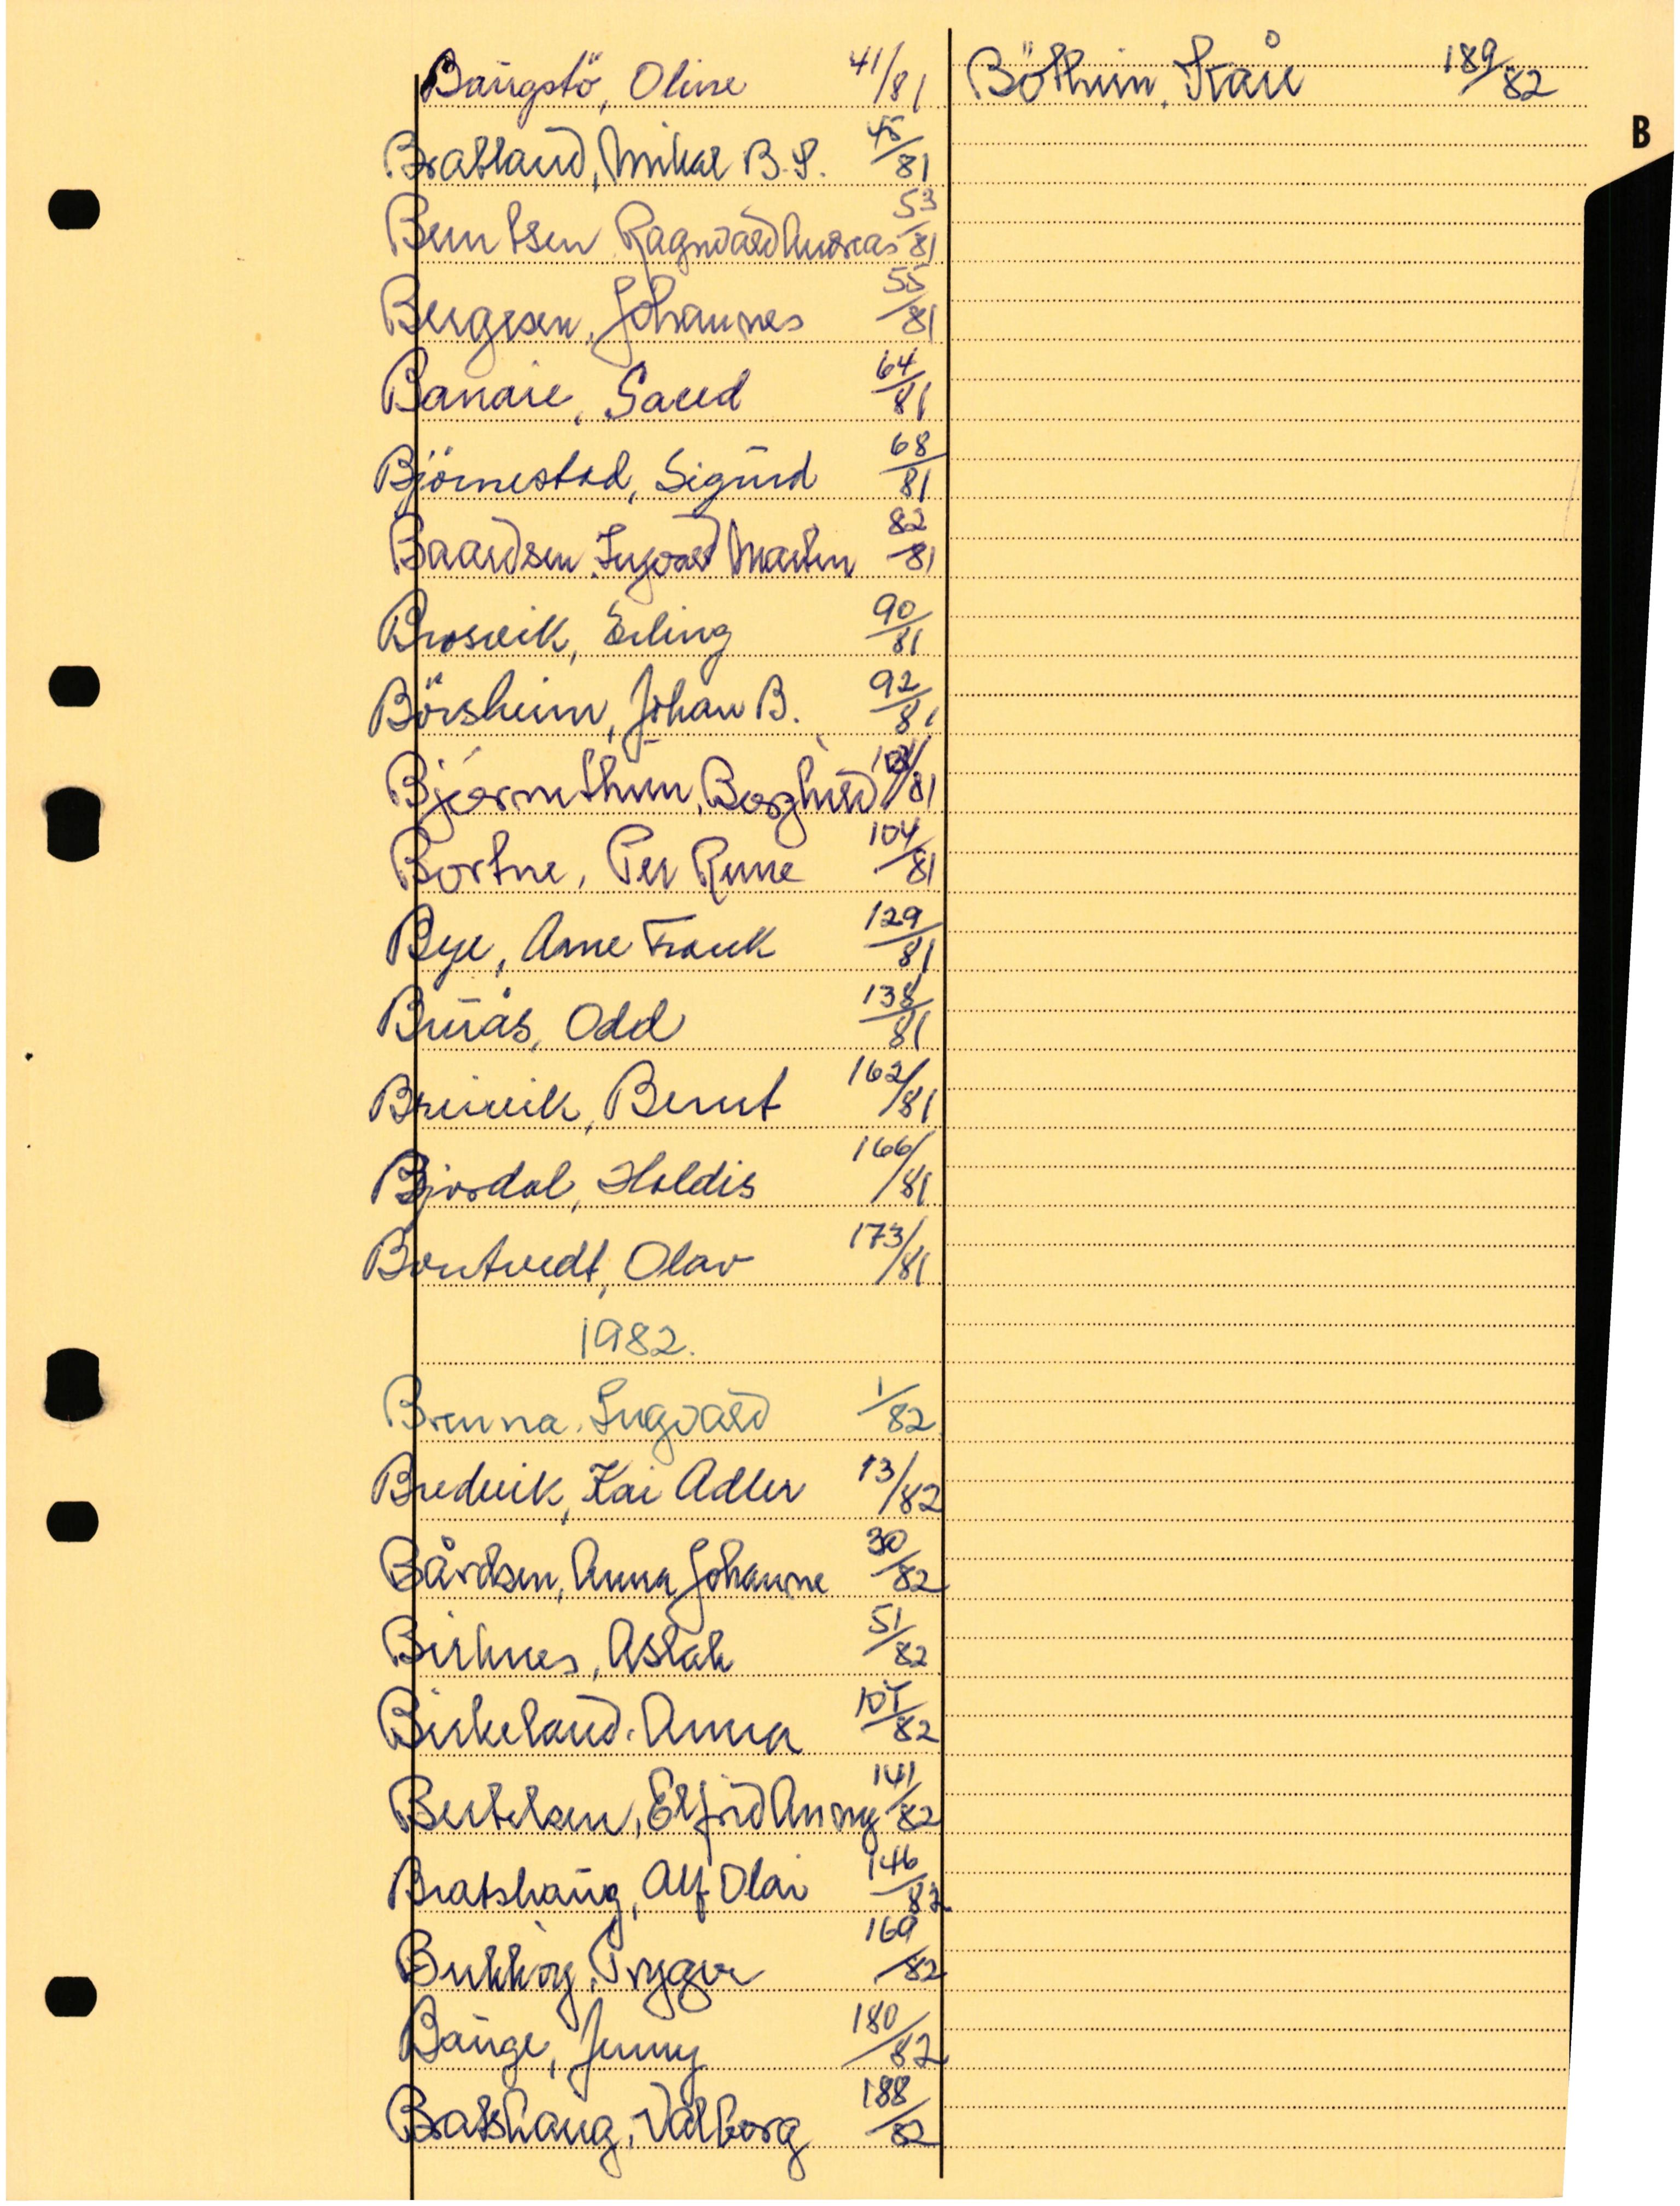 Baugstö, Oline 41/81
Bratland, Mikal B.S. 45/81
Berntsen Ragnvald Andreas 53/81
Bergesen, Johannes 55/81
Banaie, Saeed 64/81
Björnestad, Sigurd 68/81
Baardsen Ingvald Martin 82/81
Brosvik, Erling 90/81
Börsheim, Johan B. 92/81
Borghild /81
Bortne, Per Rune 104/81
Bye, Arne Frank 129/81
Buås, Odd 138/81
Breivik, Bernt 162/81
Bjordal, Haldis 166/81
Bontvedt, Olav 173/81
1982.
Brenna, Ingvald 1/82
Bredvik, Kai Adler 13/82
Bårdsen, Anna Johanne 30/82
Birknes, Aslak 51/82
Birkeland, Anna /82
Bertelsen, Elfrid Anny 141/82
Bratshaug, Alf Olai 146/82
Bukkøy, Trygve 169/82
Bauge, Jenny 180/82
Bratshaug, Valborg 188/82
Bötheim, Kåre 189/82
B